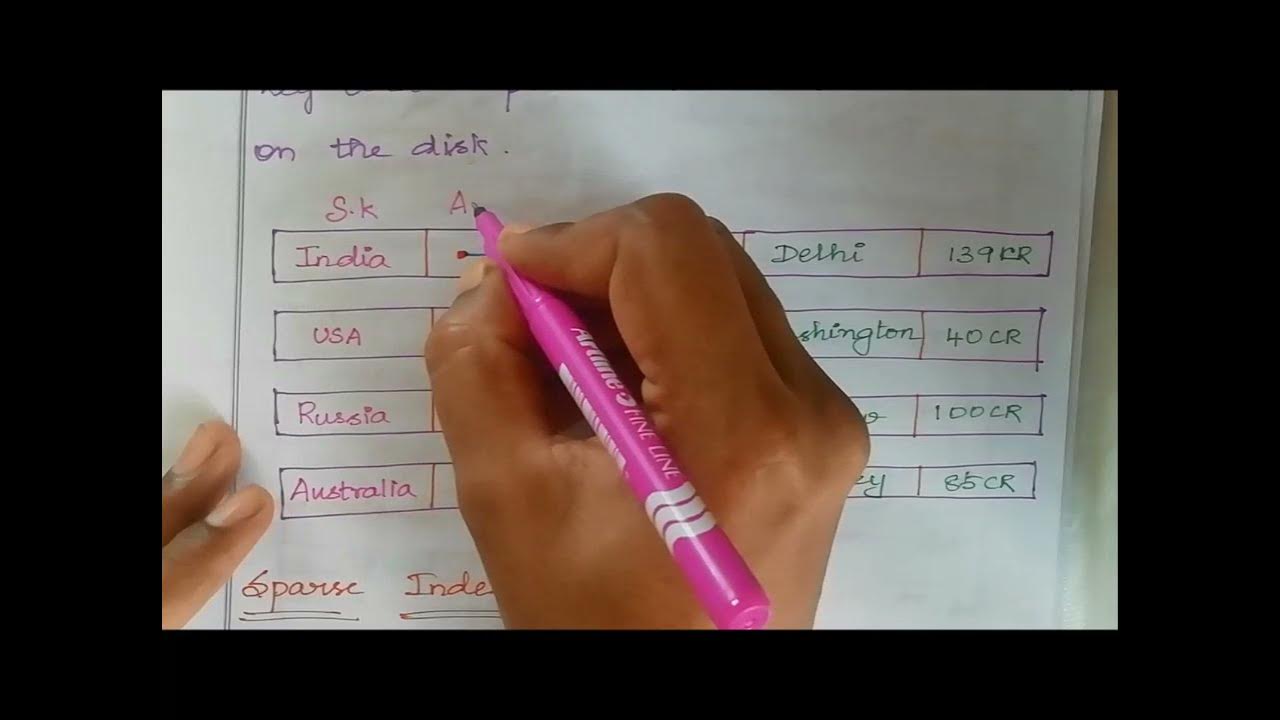 on the disk.
S.K A
India Delhi 139CR
USA shington 40CR
Russia 100CR
Australia ey 85CR
Sparse Inde
Artline 5 FINE LINE